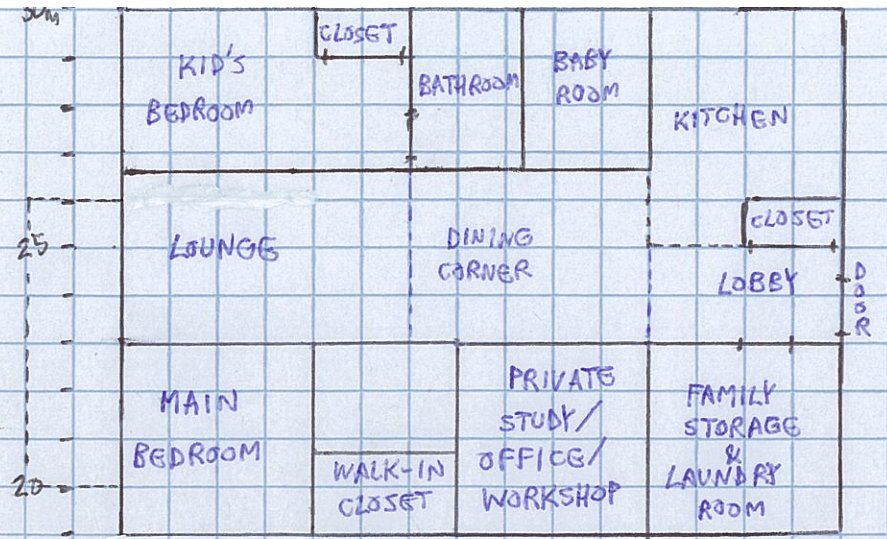 30M
KID'S
BEDROOM
CLOSET
BATHROOM
BABY
ROOM
KITCHEN
CLOSET
25
LOUNGE
DINING
CORNER
LOBBY
DOOR
MAIN
BEDROOM
WALK-IN
CLOSET
PRIVATE
STUDY/
OFFICE/
WORKSHOP
FAMILY
STORAGE
&
LAUNDRY
ROOM
20